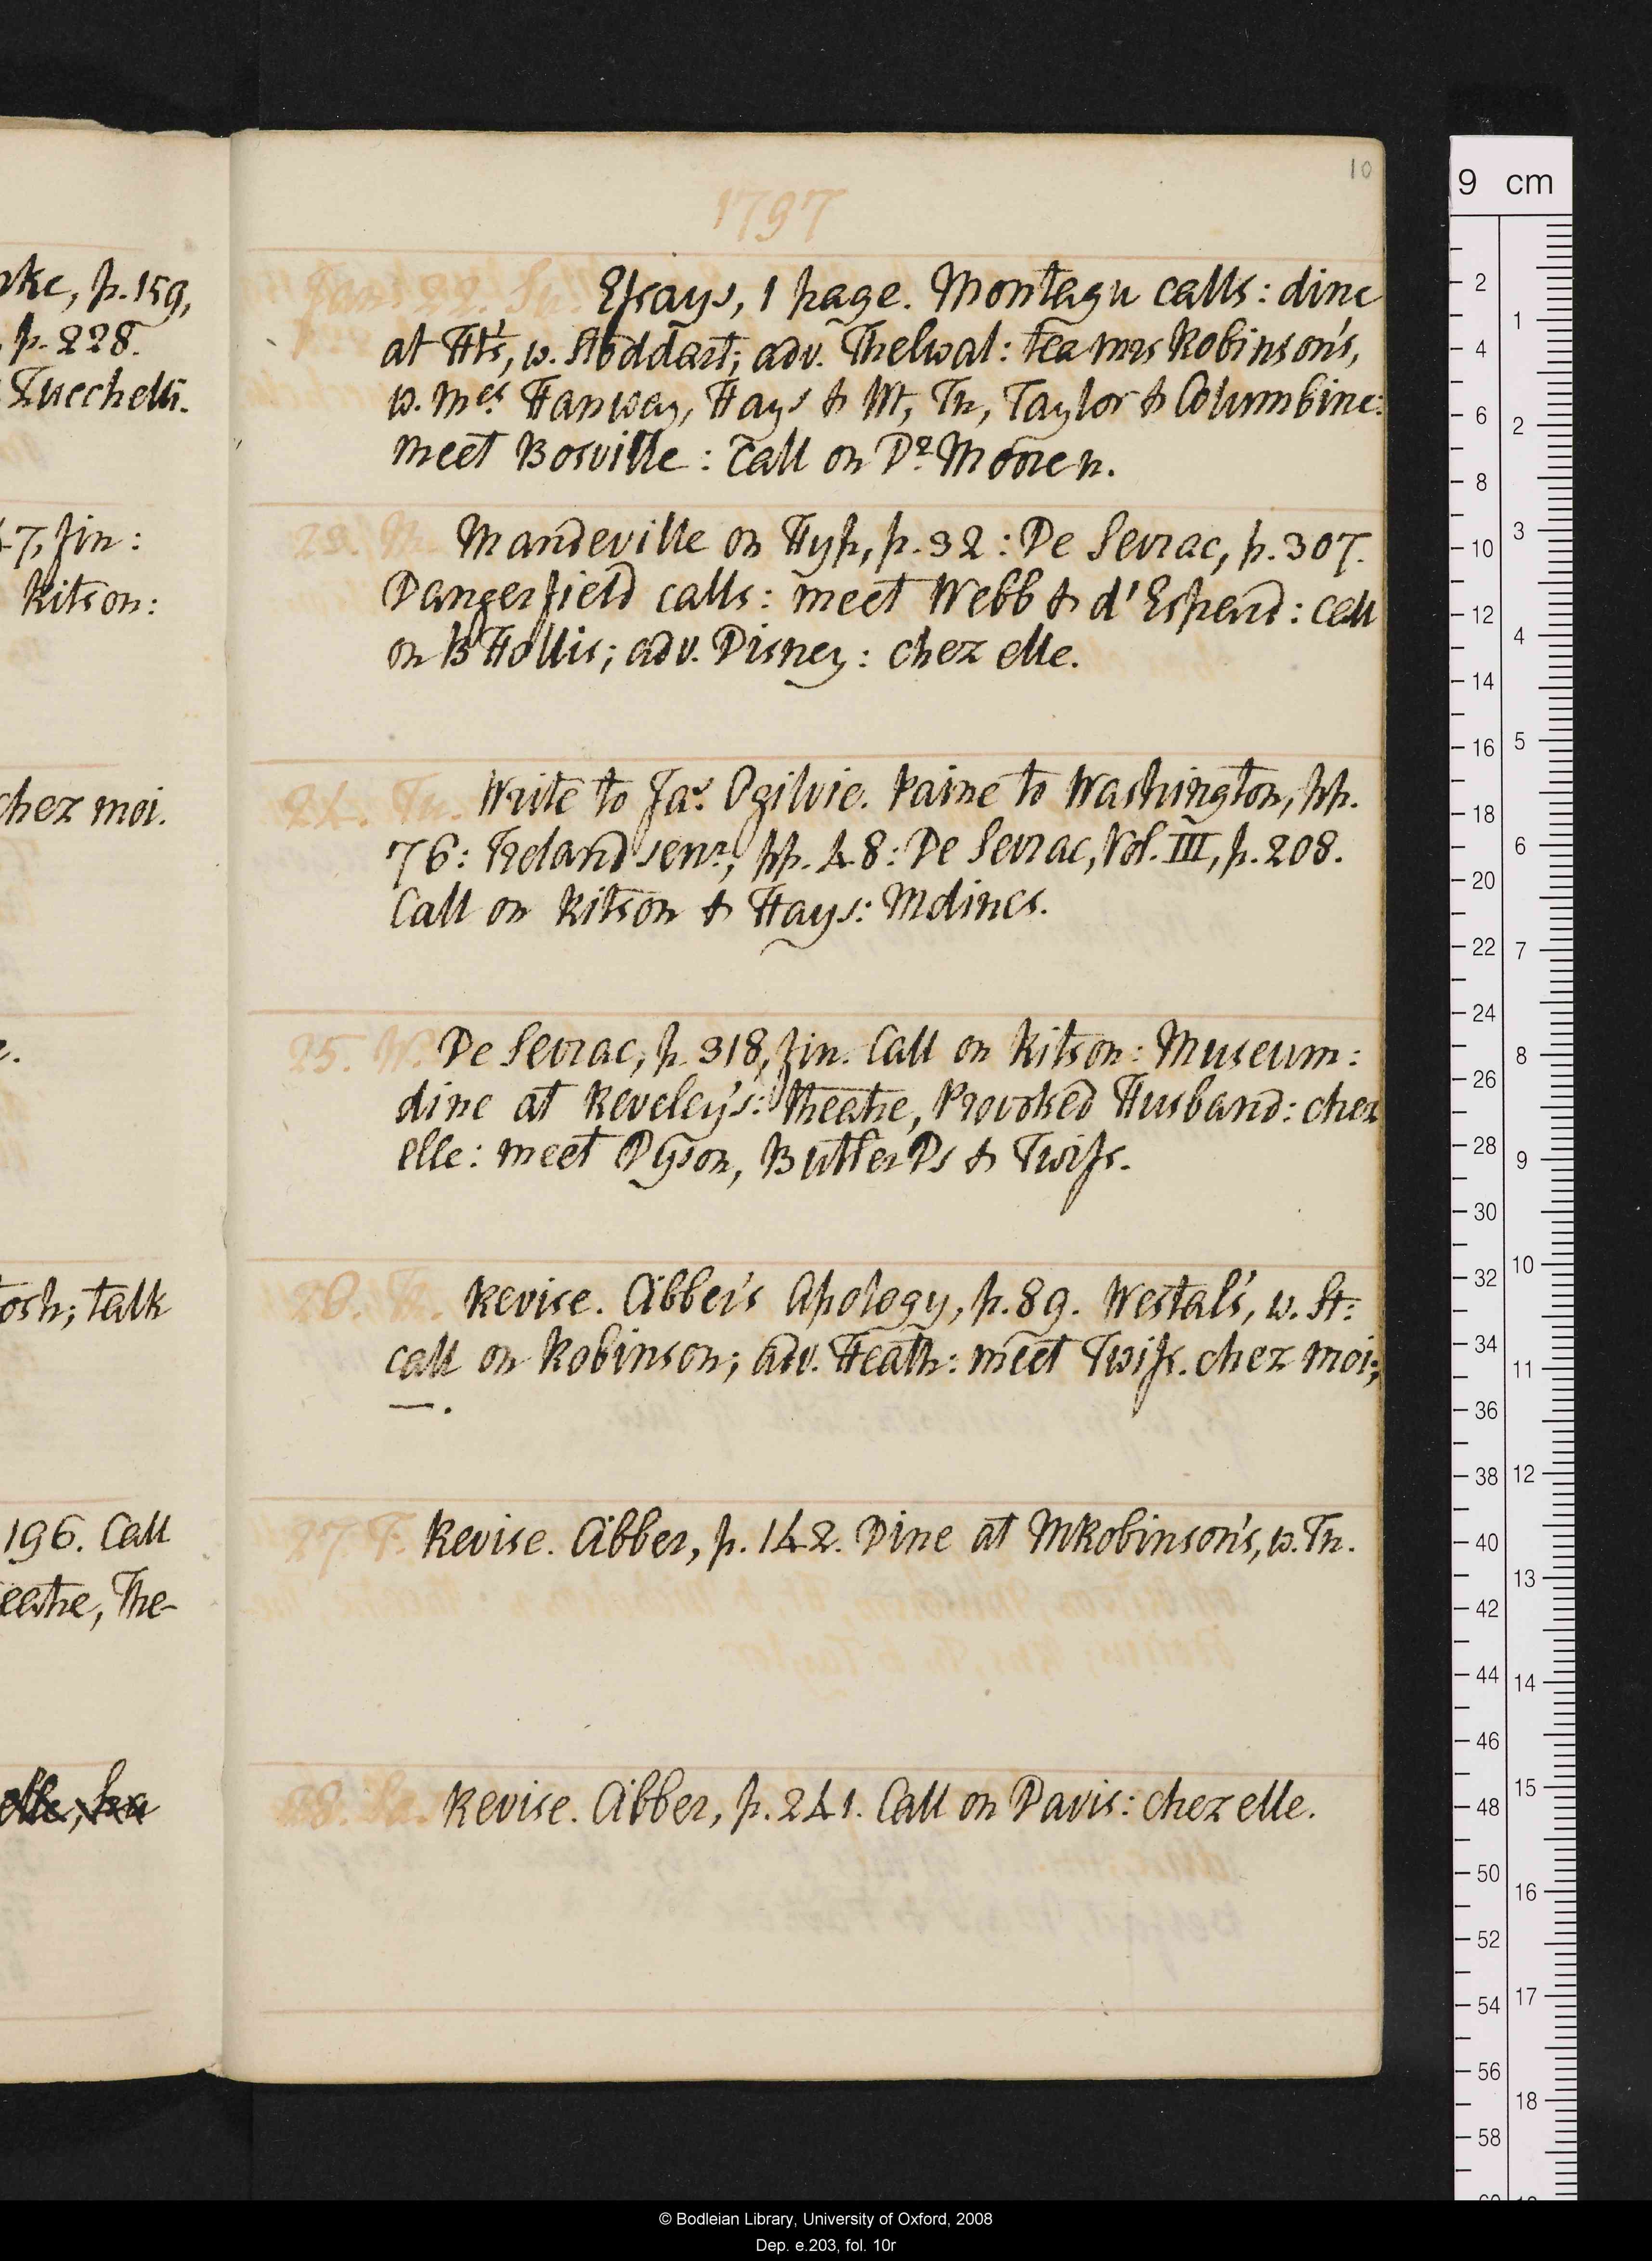 10
1797
Jan. 22. Su. Essays, 1 page. Montagu calls: dine
at Ht's, w. Stoddart; adv. Thelwal: tea mrs Robinson's,
w. mes Hanway, Hays & Wt, Tn, Taylor & Columbine:
meet Bosville: call on Dr Mooren.
23. M. Mandeville on Hyp, p. 32: De Sevrac, p. 307.
Dangerfield calls: meet Webb & d'Espard: call
on B Hollis; adv. Disney: chez elle.
24. Tu. Write to Jas Ogilvie. Paine to Washington, pp.
76: Ireland senr, pp. 48: De Sevrac, Vol. III, p. 208.
Call on Ritson & Hays: M dines.
25. W. De Sevrac, p. 318, fin. Call on Ritson: Museum:
dine at Reveley's: theatre, Provoked Husband: chez
elle: meet Dyson, Butler Ds & Twiss.
26. Th. Revise. Cibber's Apology, p. 89. Westal's, w. St:
call on Robinson; adv. Heath: meet Twiss. chez moi;
—.
27. F. Revise. Cibber, p. 142. Dine at M Robinson's, w. Tn.
28. Sa. Revise. Cibber, p. 241. Call on Davis: chez elle.
rke, p. 159,
p. 228.
Zucchelli.
47, fin:
Ritson:
chez moi.
tosh; talk
196. Call
eatre, The-
elle, ba
9 cm
2
4
6
8
10
12
14
16
18
20
22
24
26
28
30
32
34
36
38
40
42
44
46
48
50
52
54
56
58
1
2
3
4
5
6
7
8
9
10
11
12
13
14
15
16
17
18
© Bodleian Library, University of Oxford, 2008
Dep. e.203, fol. 10r